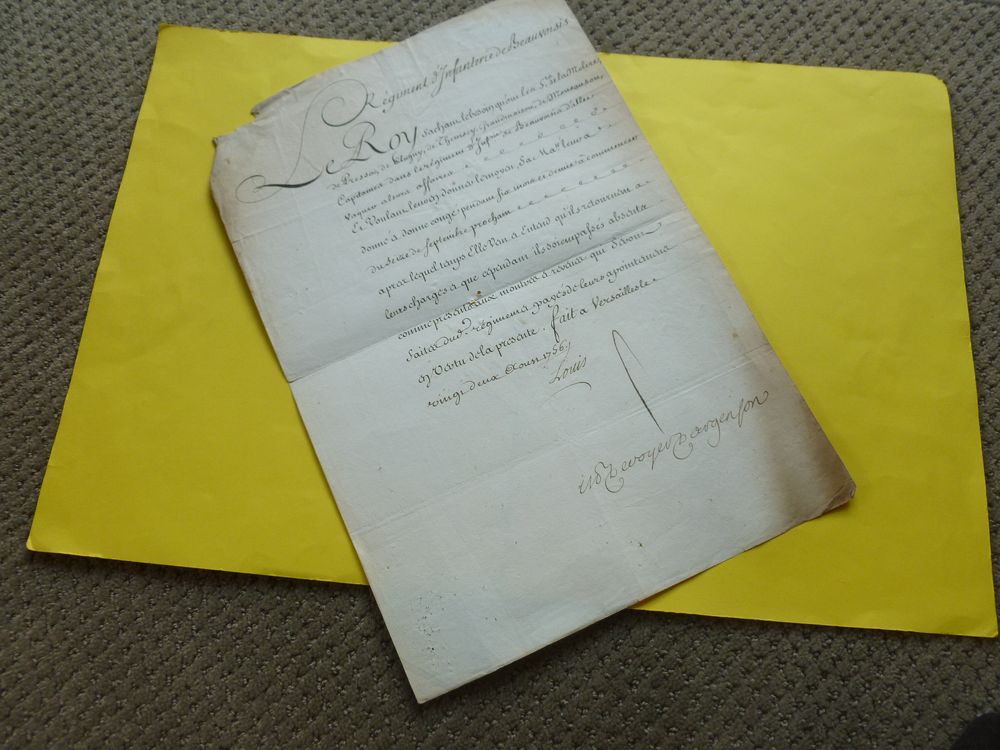 Régiment d'Infanterie de Beauvoisis
Le Roy sachant le besoin qu'ont les Srs. de la Moliere,
de Pressac, de Clugny, de Choisey, Grandmaison, de
Capitaines dans le régiment d'Infrie. de Beauvoisis d'aller
vaquer a leurs affaires
Et Voulant leur en donner le moyen Sa Maté. leur a
donné & donne congé pendant six mois et demi à commencer
du Seize de Septembre prochain
après lequel temps Elle Veut & Entend qu'ils retournent a
leurs charges & que cependant ils soient passés absents
comme présents aux montres & reveües qui Seront
faites dud. régiment & payés de leurs apointements
en Vertu de la presente. fait a Versailles le
vingt deux Aoust 1756.
Louis
M P De voyer D argenson